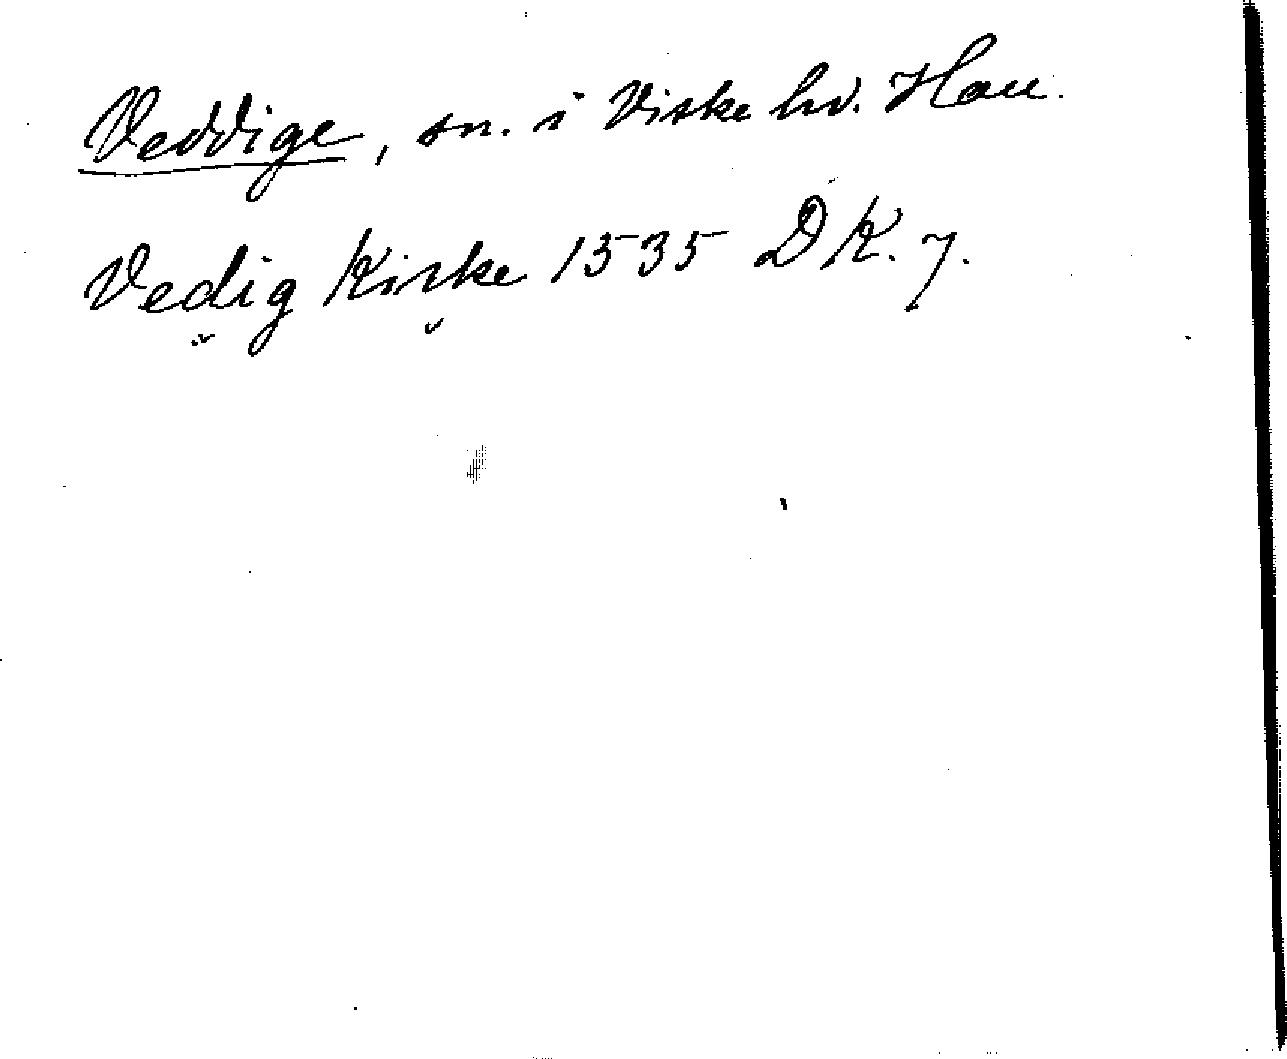 Veddige, sn. i Viske hd. Hall.
Vedig Kirke 1535 DK. 7.